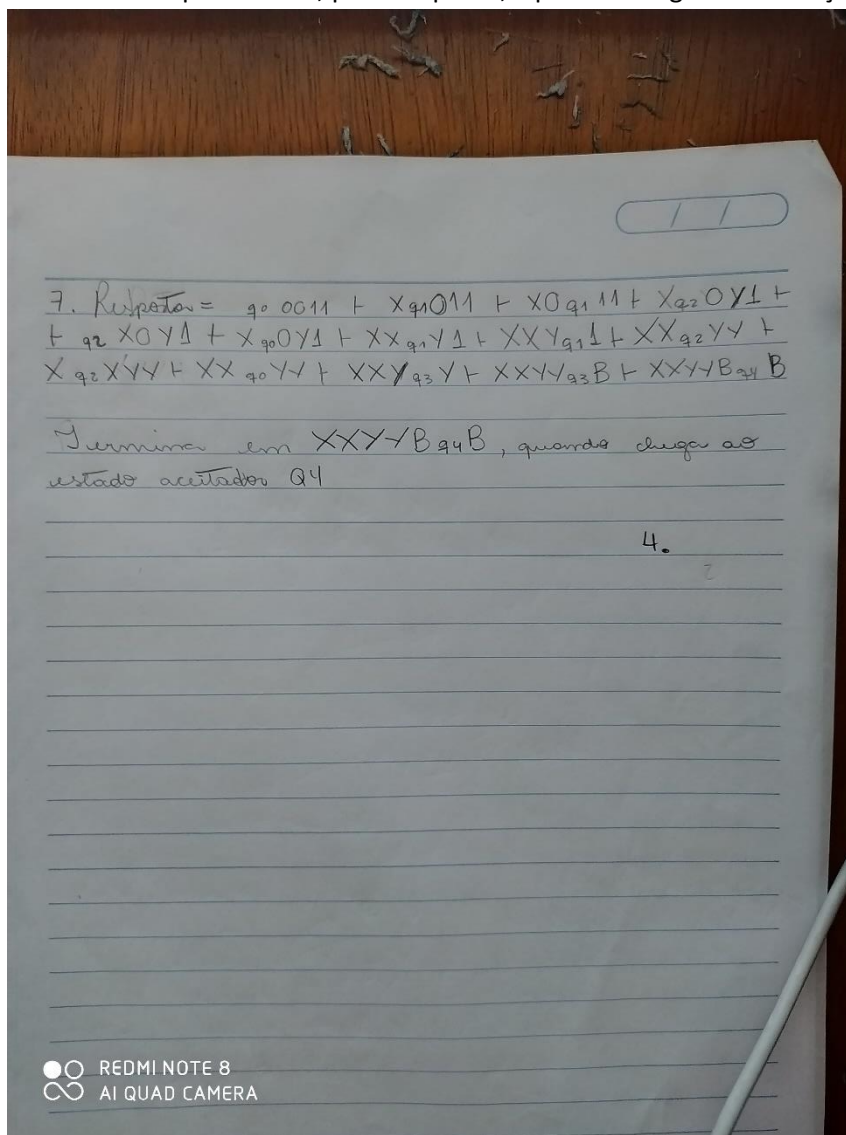 / /
7. Resposta = q0 0011 ⊢ Xq1011 ⊢ X0q111 ⊢ Xq20Y1 ⊢
⊢ q2X0Y1 ⊢ Xq00Y1 ⊢ XXq1Y1 ⊢ XXYq11 ⊢ XXq2YY ⊢
Xq2XYY ⊢ XXq0YY ⊢ XXYq3Y ⊢ XXYYq3B ⊢ XXYYBq4B
Termina em XXYYBq4B, quando chega ao
estado aceitador Q4
4.
REDMI NOTE 8
AI QUAD CAMERA